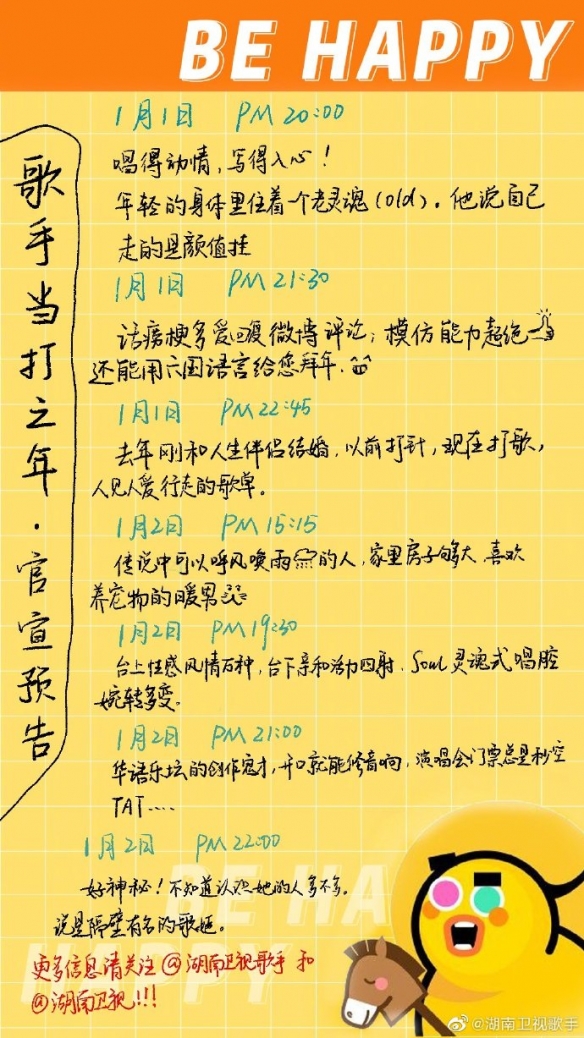 BE HAPPY
歌手当打之年·官宣预告
1月1日 PM 20:00
唱得动情，写得入心！
年轻的身体里住着一个老灵魂(old)。他说自己
走的是颜值挂
1月1日 PM 21:30
话痨梗多爱回复微博评论；模仿能力超绝
还能用六国语言给您拜年.
1月1日 PM 22:45
去年刚和人生伴侣结婚，以前打针，现在打歌，
人见人爱行走的歌单。
1月2日 PM 15:15
传说中可以呼风唤雨的人，家里房子够大，喜欢
养宠物的暖男
1月2日 PM 19:30
台上性感风情万种，台下亲和活力四射．Soul灵魂式唱腔
婉转多变。
1月2日 PM 21:00
华语乐坛的创作鬼才，开口就能修音响，演唱会门票总是秒空
TAT....
1月2日 PM 22:00
好神秘！不知道认识她的人多不多。
说是隔壁有名的歌姬。
BE HA
HAPPY
更多信息请关注@湖南卫视歌手 和
@湖南卫视!!!
@湖南卫视歌手